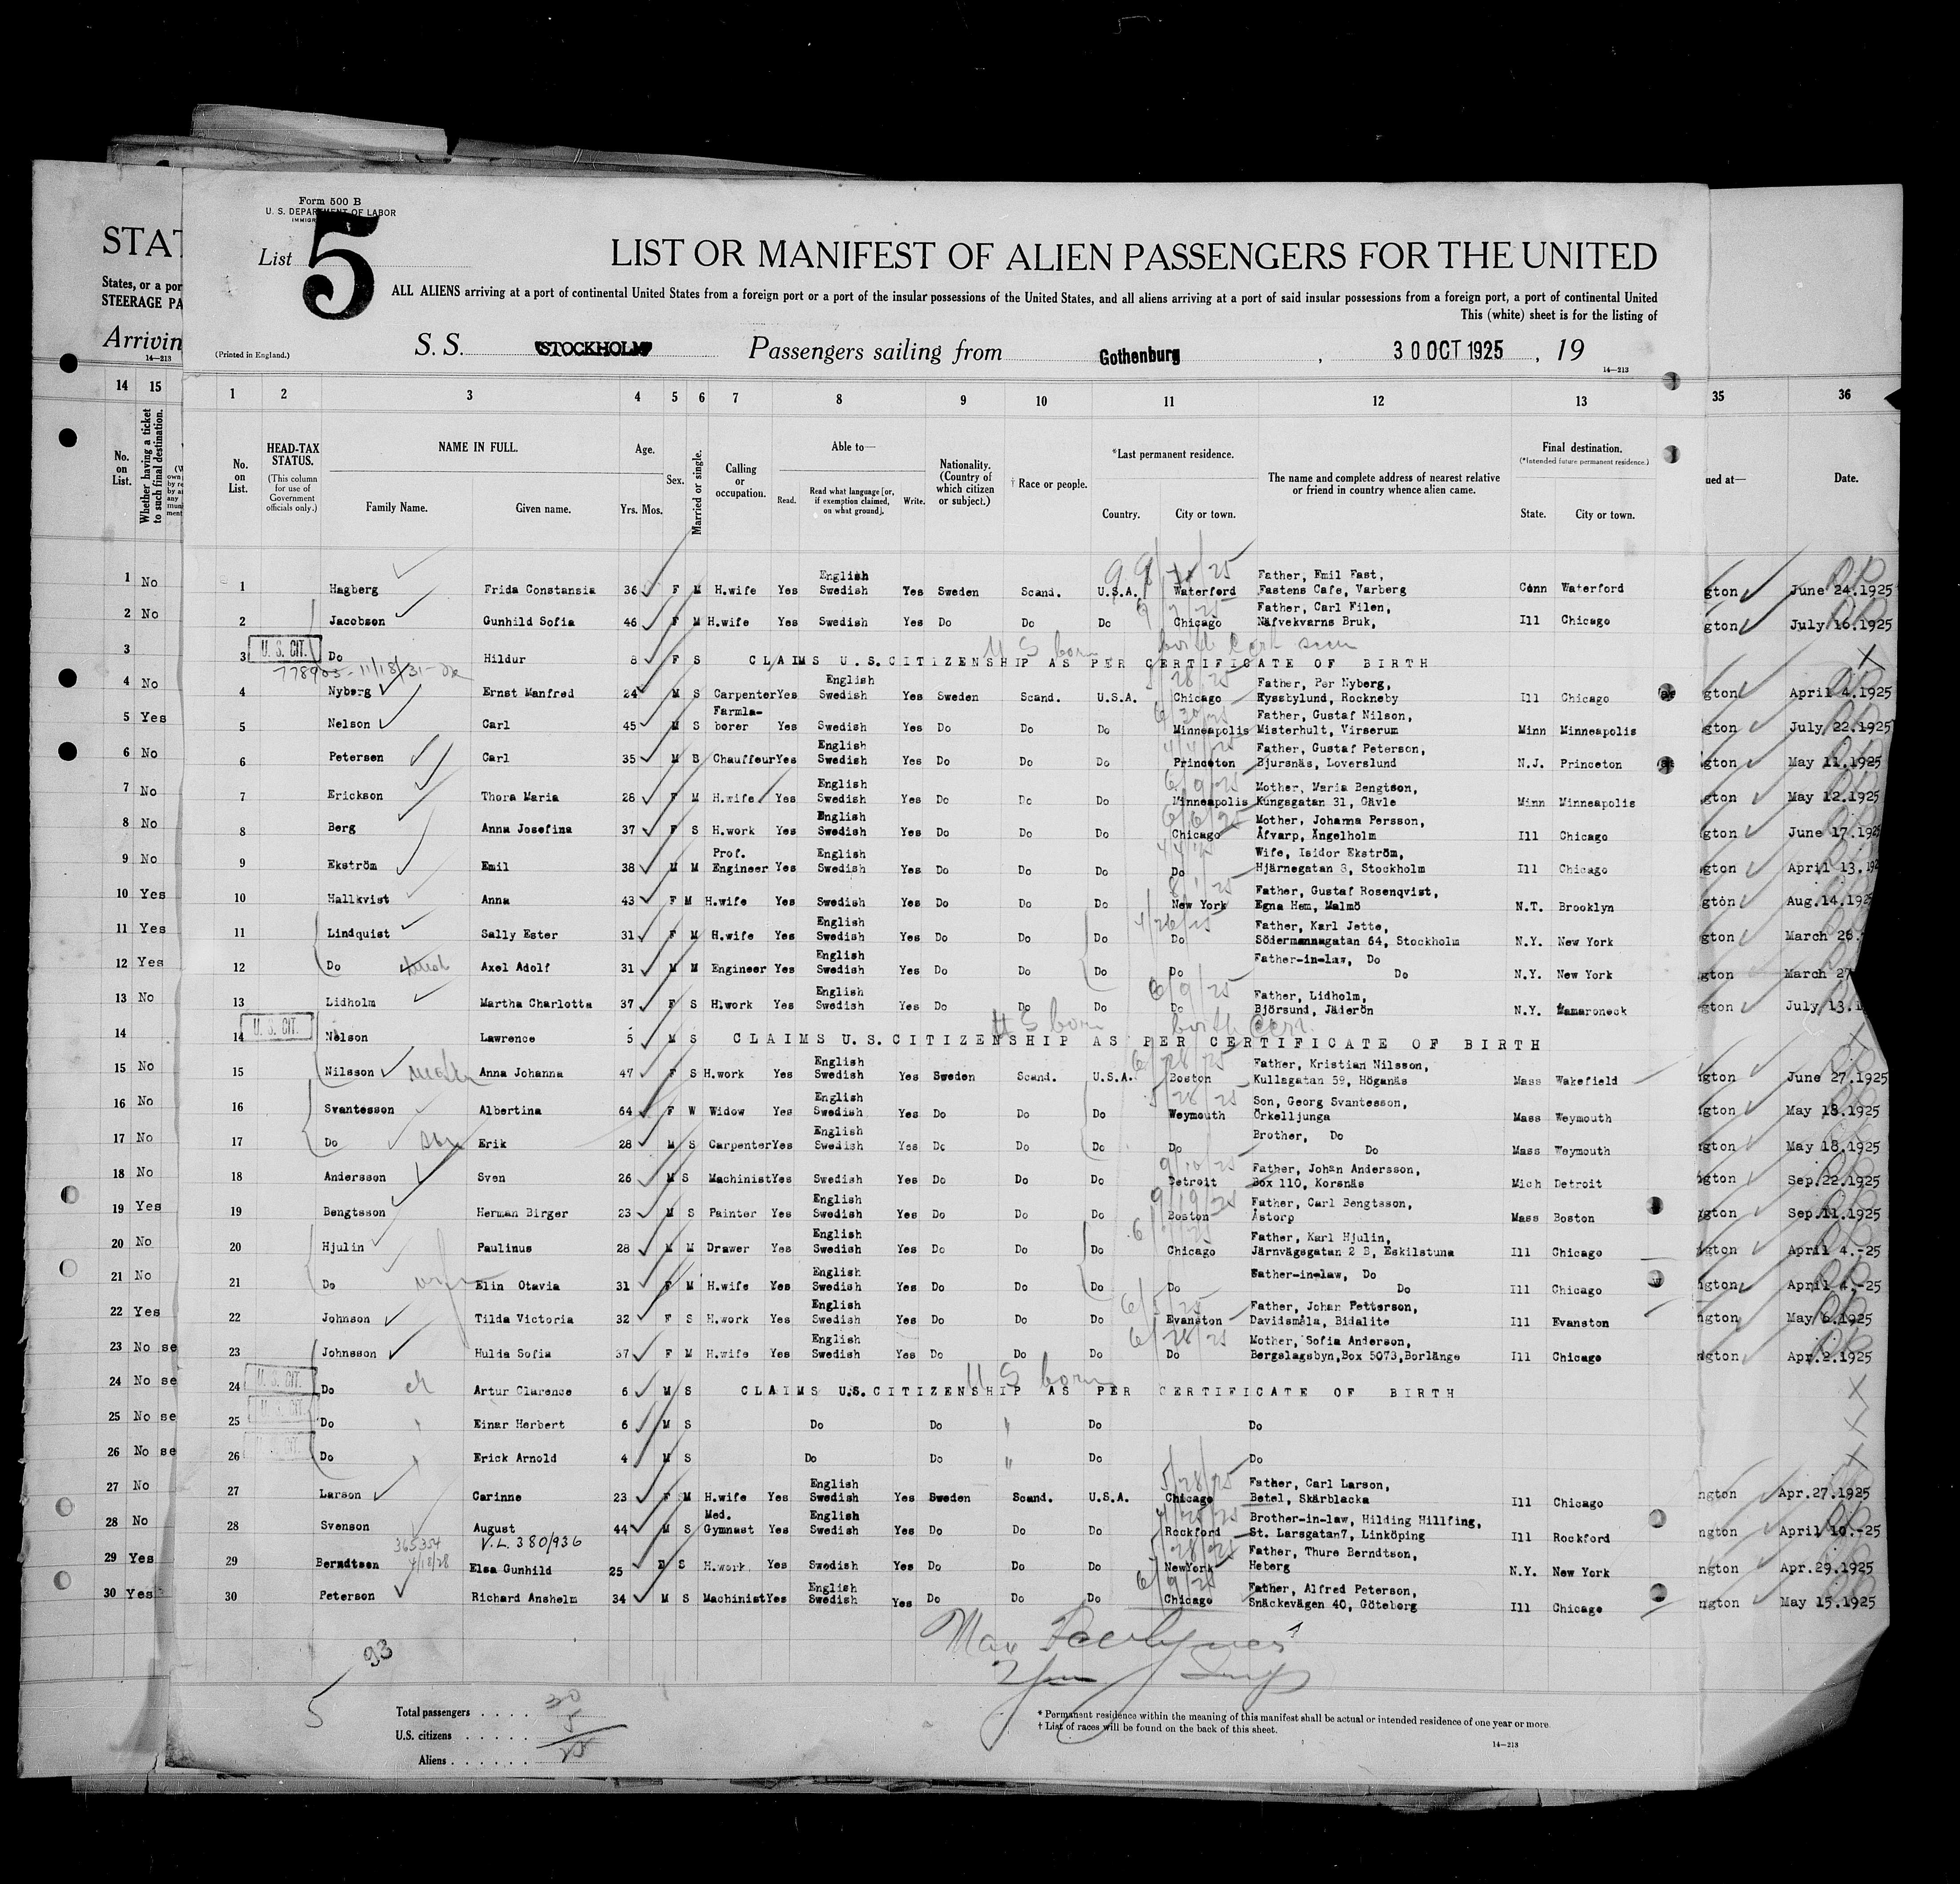 Form 500 B
U. S. DEPARTMENT OF LABOR
List 5
LIST OR MANIFEST OF ALIEN PASSENGERS FOR THE UNITED
ALL ALIENS arriving at a port of continental United States from a foreign port or a port of the insular possessions of the United States, and all aliens arriving at a port of said insular possessions from a foreign port, a port of continental United
This (white) sheet is for the listing of
(Printed in England.)
S. S. STOCKHOLM Passengers sailing from Gothenburg , 30 OCT 1925 , 19
14—213
STAT
States, or a por
STEERAGE PA
Arrivin
14—213
14 15 1 2 3 4 5 6 7 8 9 10 11 12 13 35 36
No. on List. Whether having a ticket to such final destination.
No. on List. HEAD-TAX STATUS. (This column for use of Government officials only.) NAME IN FULL. Family Name. Given name. Age. Yrs. Mos. Sex. Married or single. Calling or occupation. Able to— Read. Read what language [or, if exemption claimed, on what ground]. Write. Nationality. (Country of which citizen or subject.) † Race or people. *Last permanent residence. Country. City or town. The name and complete address of nearest relative or friend in country whence alien came. Final destination. (*Intended future permanent residence.) State. City or town. ued at— Date.
1 No 1 Hagberg Frida Constansia 36 F M H.wife Yes English Swedish Yes Sweden Scand. U.S.A. Waterford Father, Emil Fast, Fastens Cafe, Varberg Conn Waterford gton June 24.1925
2 No 2 Jacobson Gunhild Sofia 46 F M H.wife Yes Swedish Yes Do Do Do Chicago Father, Carl Filen, Näfvekvarns Bruk, Ill Chicago gton July 16.1925
3 3 U. S. CIT. Do Hildur 8 F S CLAIMS U.S.CITIZENSHIP AS PER CERTIFICATE OF BIRTH US born birth Cert seen X
4 No 4 Nyberg Ernst Manfred 24 M S Carpenter Yes English Swedish Yes Sweden Scand. U.S.A. Chicago Father, Per Nyberg, Ryssbylund, Rockneby Ill Chicago gton April 4.1925
5 Yes 5 Nelson Carl 45 M S Farmla- borer Yes Swedish Yes Do Do Do Minneapolis Father, Gustaf Nilson, Misterhult, Virserum Minn Minneapolis gton July 22.1925
6 No 6 Petersen Carl 35 M B Chauffeur Yes English Swedish Yes Do Do Do Princeton Father, Gustaf Peterson, Bjursnäs, Loverslund N.J. Princeton gton May 11.1925
7 No 7 Erickson Thora Maria 28 F M H.wife Yes English Swedish Yes Do Do Do Minneapolis Mother, Maria Bengtson, Kungsgatan 31, Gävle Minn Minneapolis gton May 12.1925
8 No 8 Berg Anna Josefina 37 F S H.work Yes English Swedish Yes Do Do Do Chicago Mother, Johanna Persson, Åfvarp, Ängelholm Ill Chicago gton June 17.192
9 No 9 Ekström Emil 38 M M Prof. Engineer Yes English Swedish Yes Do Do Do Do Wife, Isidor Ekström, Hjärnegatan 8, Stockholm Ill Chicago gton April 13.192
10 Yes 10 Hallkvist Anna 43 F M H.wife Yes Swedish Yes Do Do Do New York Father, Gustaf Rosenqvist, Egna Hem, Malmö N.T. Brooklyn gton Aug.14.192
11 Yes 11 Lindquist Sally Ester 31 F M H.wife Yes English Swedish Yes Do Do Do Do Father, Karl Jette, Södermannagatan 64, Stockholm N.Y. New York gton March 26.
12 Yes 12 Do Axel Adolf 31 M M Engineer Yes English Swedish Yes Do Do Do Do Father-in-law, Do Do N.Y. New York gton March 27
13 No 13 Lidholm Martha Charlotta 37 F S H.work Yes English Swedish Yes Do Do Do Do Father, Lidholm, Björsund, Jäderön N.Y. Mamaroneck gton July 13.1
14 14 U. S. CIT. Nelson Lawrence 5 M S CLAIMS U.S.CITIZENSHIP AS PER CERTIFICATE OF BIRTH US born birth Cert.
15 No 15 Nilsson Anna Johanna 47 F S H.work Yes English Swedish Yes Sweden Scand. U.S.A. Boston Father, Kristian Nilsson, Kullagatan 59, Höganäs Mass Wakefield ngton June 27.1925
16 No 16 Svantesson Albertina 64 F W Widow Yes English Swedish Yes Do Do Do Weymouth Son, Georg Svantesson, Örkelljunga Mass Weymouth ngton May 18.1925
17 No 17 Do Son Erik 28 M S Carpenter Yes English Swedish Yes Do Do Do Do Brother, Do Do Mass Weymouth ngton May 18.1925
18 No 18 Andersson Sven 26 M S Machinist Yes Swedish Yes Do Do Do Detroit Father, Johan Andersson, Box 110, Korsnäs Mich Detroit ngton Sep.22.1925
19 Yes 19 Bengtsson Herman Birger 23 M S Painter Yes English Swedish Yes Do Do Do Boston Father, Carl Bengtsson, Åstorp Mass Boston ngton Sep.11.1925
20 No 20 Hjulin Paulinus 28 M M Drawer Yes English Swedish Yes Do Do Do Chicago Father, Karl Hjulin, Järnvägsgatan 2 B, Eskilstuna Ill Chicago ngton April 4.-25
21 No 21 Do wife Elin Otavia 31 F M H.wife Yes English Swedish Yes Do Do Do Do Father-in-law, Do Do Ill Chicago ngton April 4.-25
22 Yes 22 Johnson Tilda Victoria 32 F S H.work Yes English Swedish Yes Do Do Do Evanston Father, Johan Petterson, Davidsmåla, Bidalite Ill Evanston ngton May 6.1925
23 No se 23 Johnsson Hulda Sofia 37 F M H.wife Yes English Swedish Yes Do Do Do Do Mother, Sofia Anderson, Bergslagsbyn,Box 5073,Borlänge Ill Chicago ngton Apr.2.1925
24 No se 24 U. S. CIT. Do Artur Clarence 6 M S CLAIMS U.S.CITIZENSHIP AS PER CERTIFICATE OF BIRTH US born X
25 No se 25 U. S. CIT. Do Einar Herbert 6 M S Do Do " Do Do X
26 No se 26 U. S. CIT. Do Erick Arnold 4 M S Do Do " Do Do X
27 No 27 Larson Carinne 23 F M H.wife Yes English Swedish Yes Sweden Scand. U.S.A. Chicago Father, Carl Larson, Betel, Skärblacka Ill Chicago ngton Apr.27.1925
28 No 28 Svenson August 44 M S Med. Gymnast Yes English Swedish Yes Do Do Do Rockford Brother-in-law, Hilding Hillfing, St. Larsgatan7, Linköping Ill Rockford ngton April 10.-25
V.L. 380/936
365354 4/18/28
29 Yes 29 Berndtson Elsa Gunhild 25 F S H.work Yes Swedish Yes Do Do Do NewYork Father, Thure Berndtson, Heberg N.Y. New York ngton Apr.29.1925
30 Yes 30 Peterson Richard Anshelm 34 M S Machinist Yes English Swedish Yes Do Do Do Chicago Father, Alfred Peterson, Snäckevägen 40, Göteborg Ill Chicago ngton May 15.1925
93
5
Total passengers . . . . 30
U.S. citizens . . . . . . 5
Aliens . . . . . . 25
* Permanent residence within the meaning of this manifest shall be actual or intended residence of one year or more.
† List of races will be found on the back of this sheet.
14—213